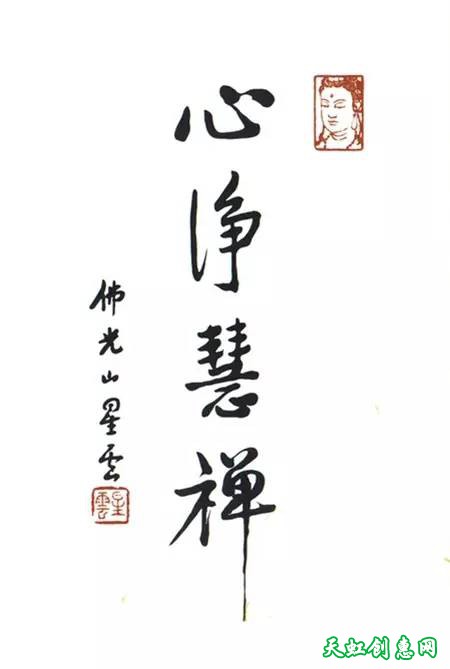 心净慧禅
佛光山星云
星雲
天虹创意网